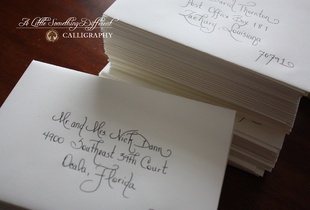 A Little Something Different
CALLIGRAPHY
Thornton
Post Office Box 151
Zachary, Louisiana
70791
Mr. and Mrs. Nick Dann
4900 Southeast 39th Court
Ocala, Florida